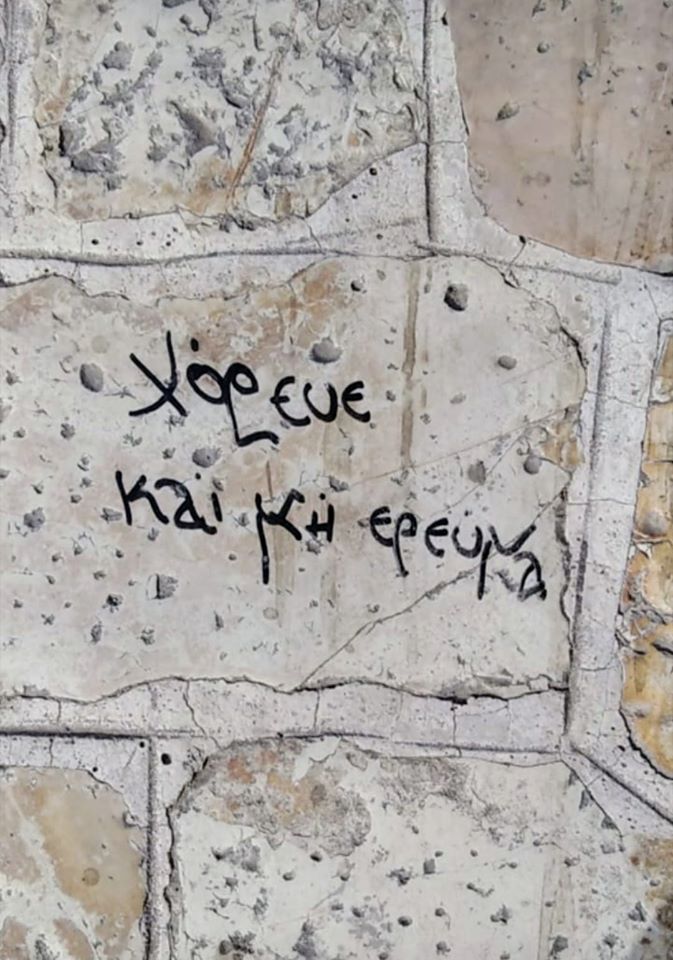 χόρευε
και μη ερευνα